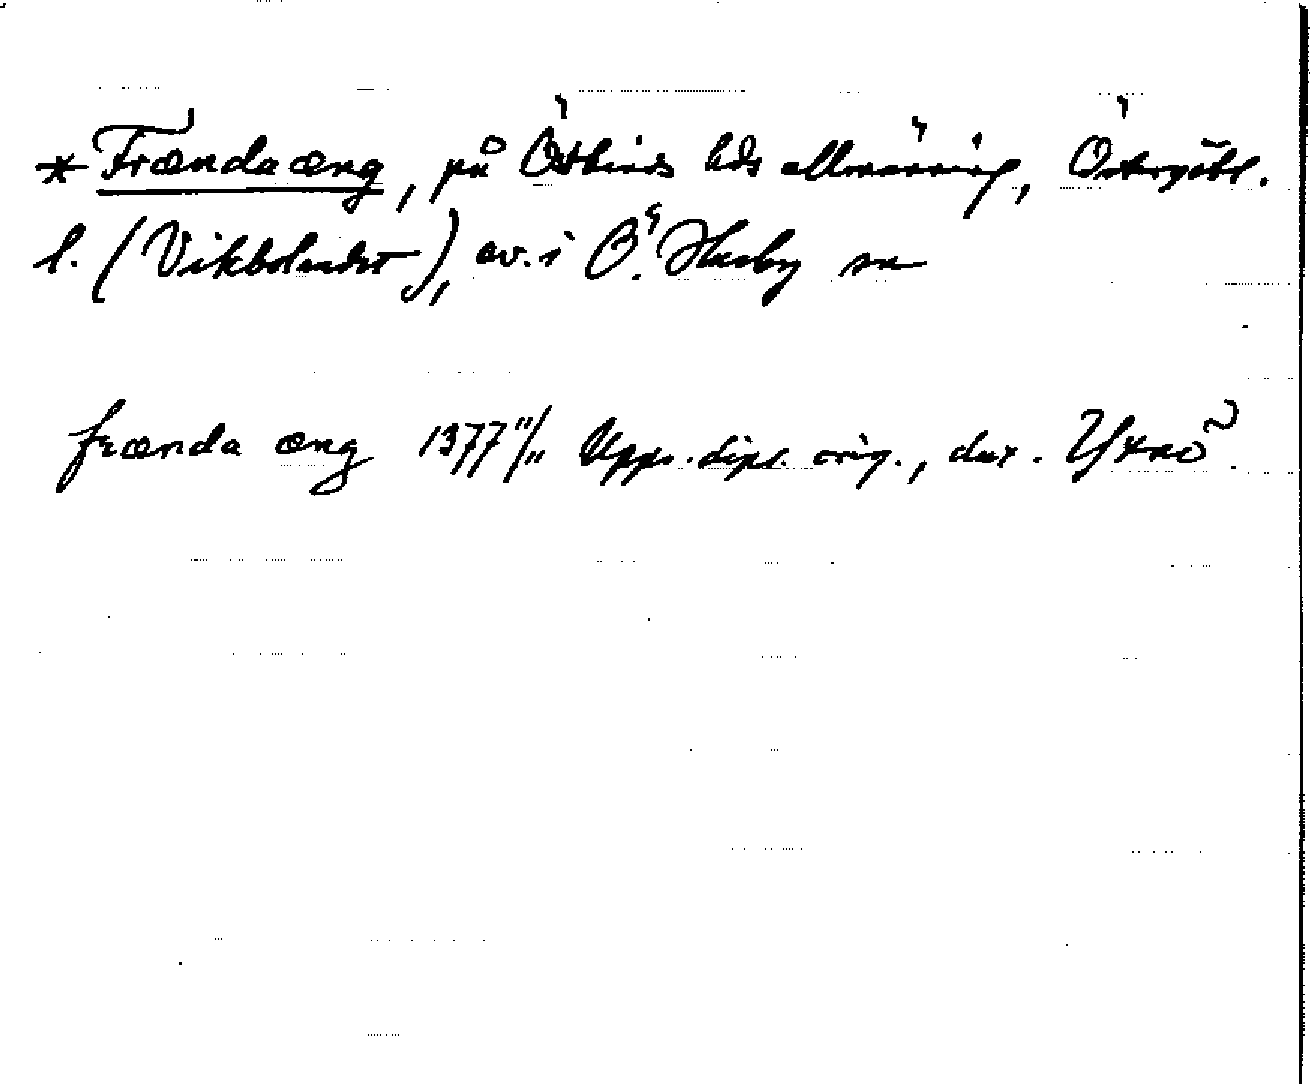 * Frændaæng, på Östkinds hds allmänning, Östergötl.
l. (Vikbolandet), ev. i Ö. Husby sn
frænda æng 1377 11/11 Upps. dipl. orig., dat. Yxnö